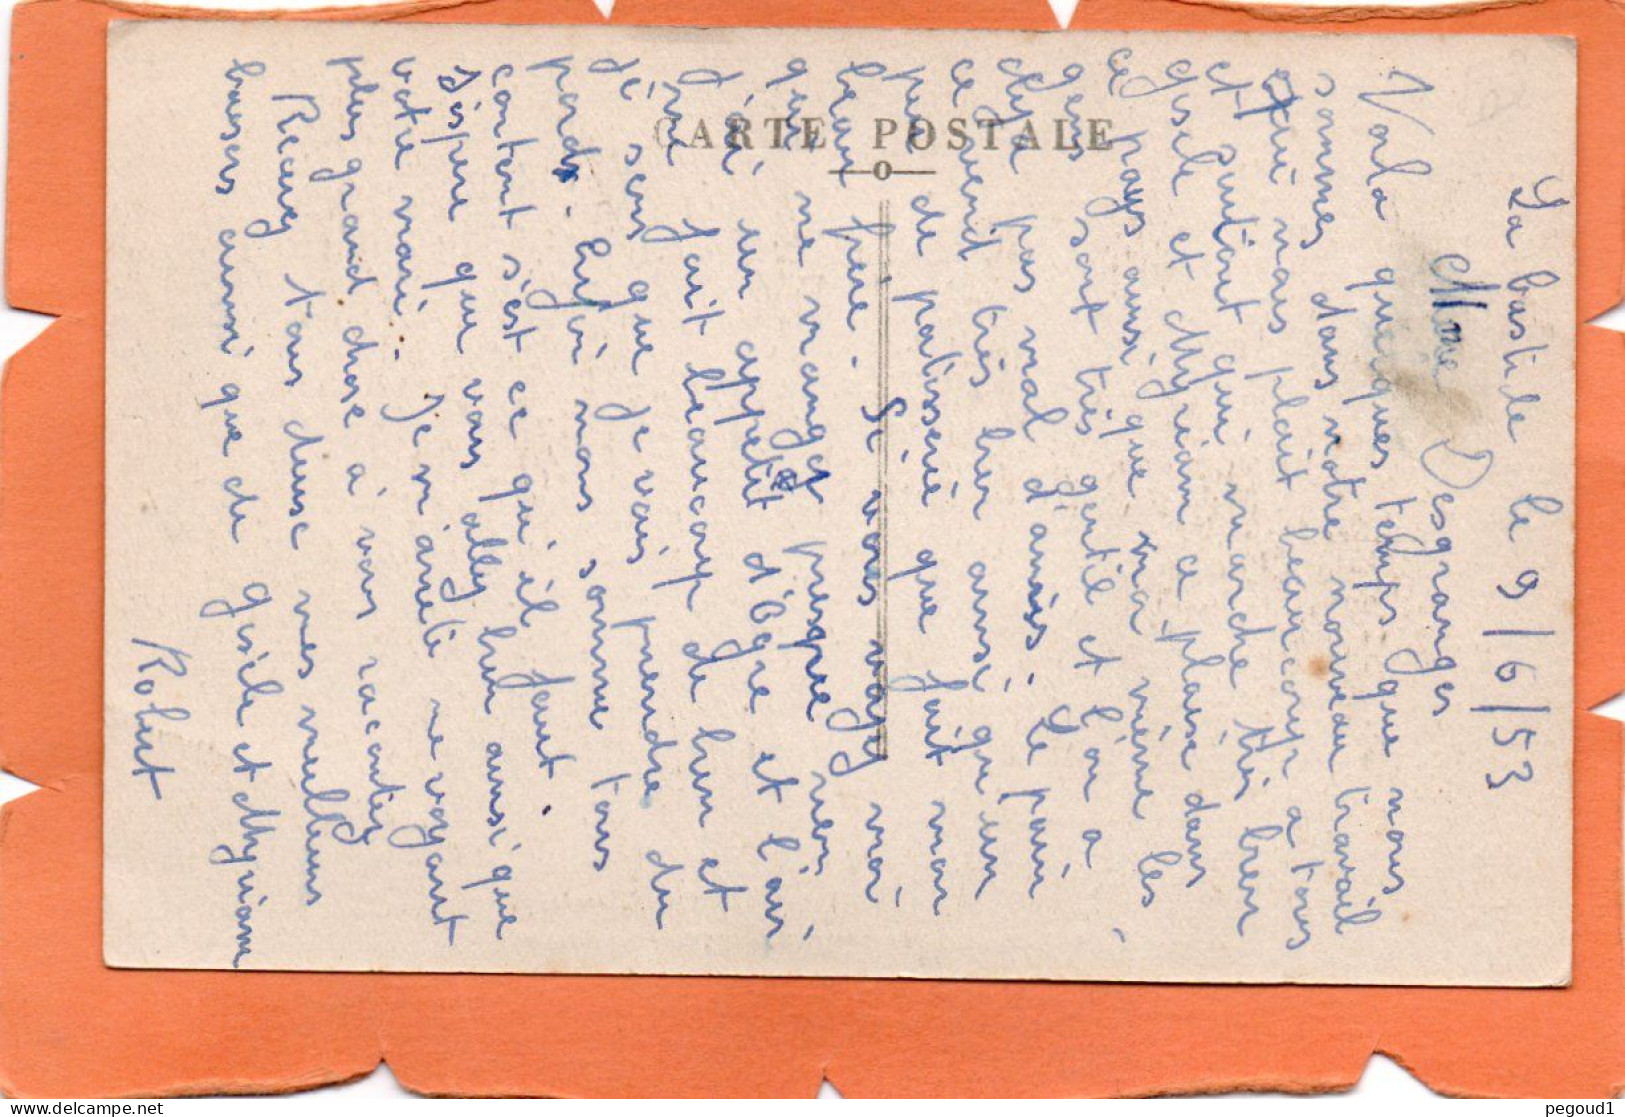 La bastide le 9/6/53
Mme Desgranges
Voila quelques temps que nous
sommes dans notre nouveau travail
qui nous plait beaucoup a tous
et surtout qui marche très bien
gisèle et Myriam ce plaise dans
ce pays ainsi que moi même les
gens sont très gentil et l'on a
deja pas mal d'amis. Le pain
ce vend très bien aussi qu'un
peu de patisserie que fait mon
beau père. Si vous voyez moi
qui ne manger presque rien
j'ai un appetit d'Ogre et l'air
pure fait beaucoup de bien et
je sens que je vais prendre du
poids. Enfin nous somme tous
contant s'est ce qu'il faut.
J'espere que vous allez bien ainsi que
votre mari. Je m'arrete ne voyant
plus grand chose a vous racontez
Recevez tous deuse mes meilleurs
baisers ainsi que de gisèle et Myriam
Robert
CARTE POSTALE
pegoud1